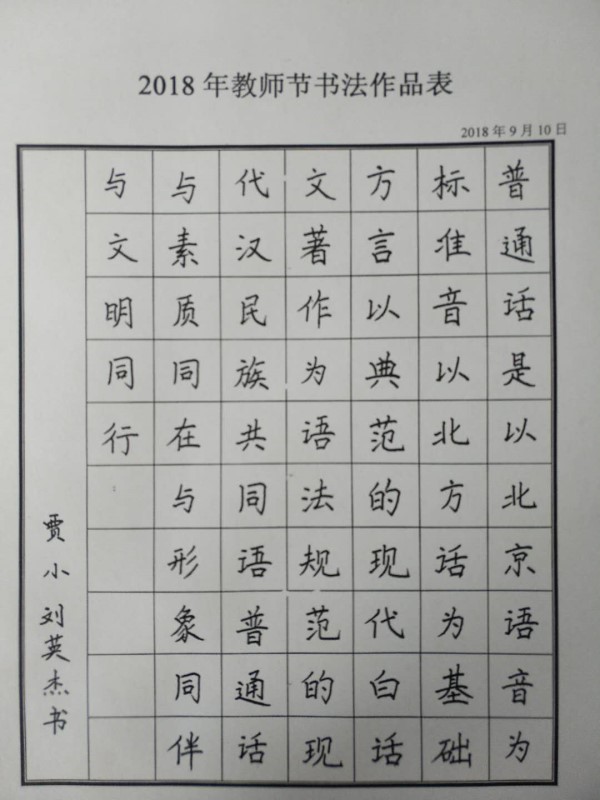 2018年教师节书法作品表
2018年9月10日
普通话是以北京语音为
标准音以北方话为基础
方言以典范的现代白话
文著作为语法规范的现
代汉民族共同语普通话
与素质同在与形象同伴
与文明同行
贾小刘英杰书